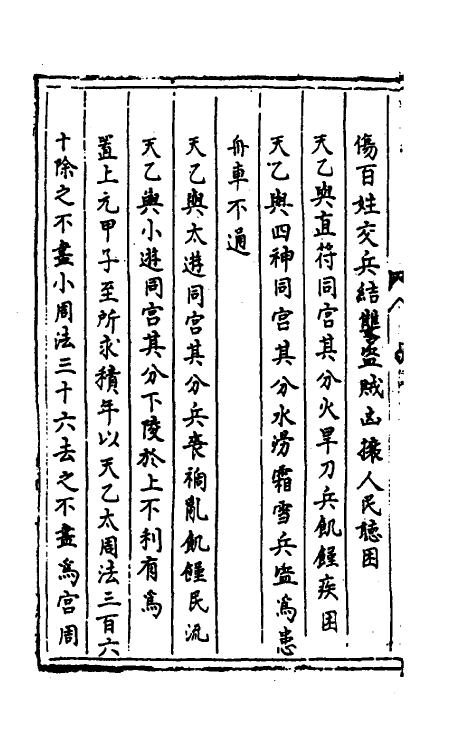 傷百姓交兵結讐盜賊凶攘人民聴困
天乙與直符同宮其分火旱刀兵飢饉疾困
天乙與四神同宮其分水澇霜雪兵盜為患
舟車不通
天乙與太遊同宮其分兵喪禍亂飢饉民流
天乙與小遊同宮其分下陵於上不利有為
置上元甲子至所求積年以天乙太周法三百六
十除之不盡小周法三十六去之不盡為宮周